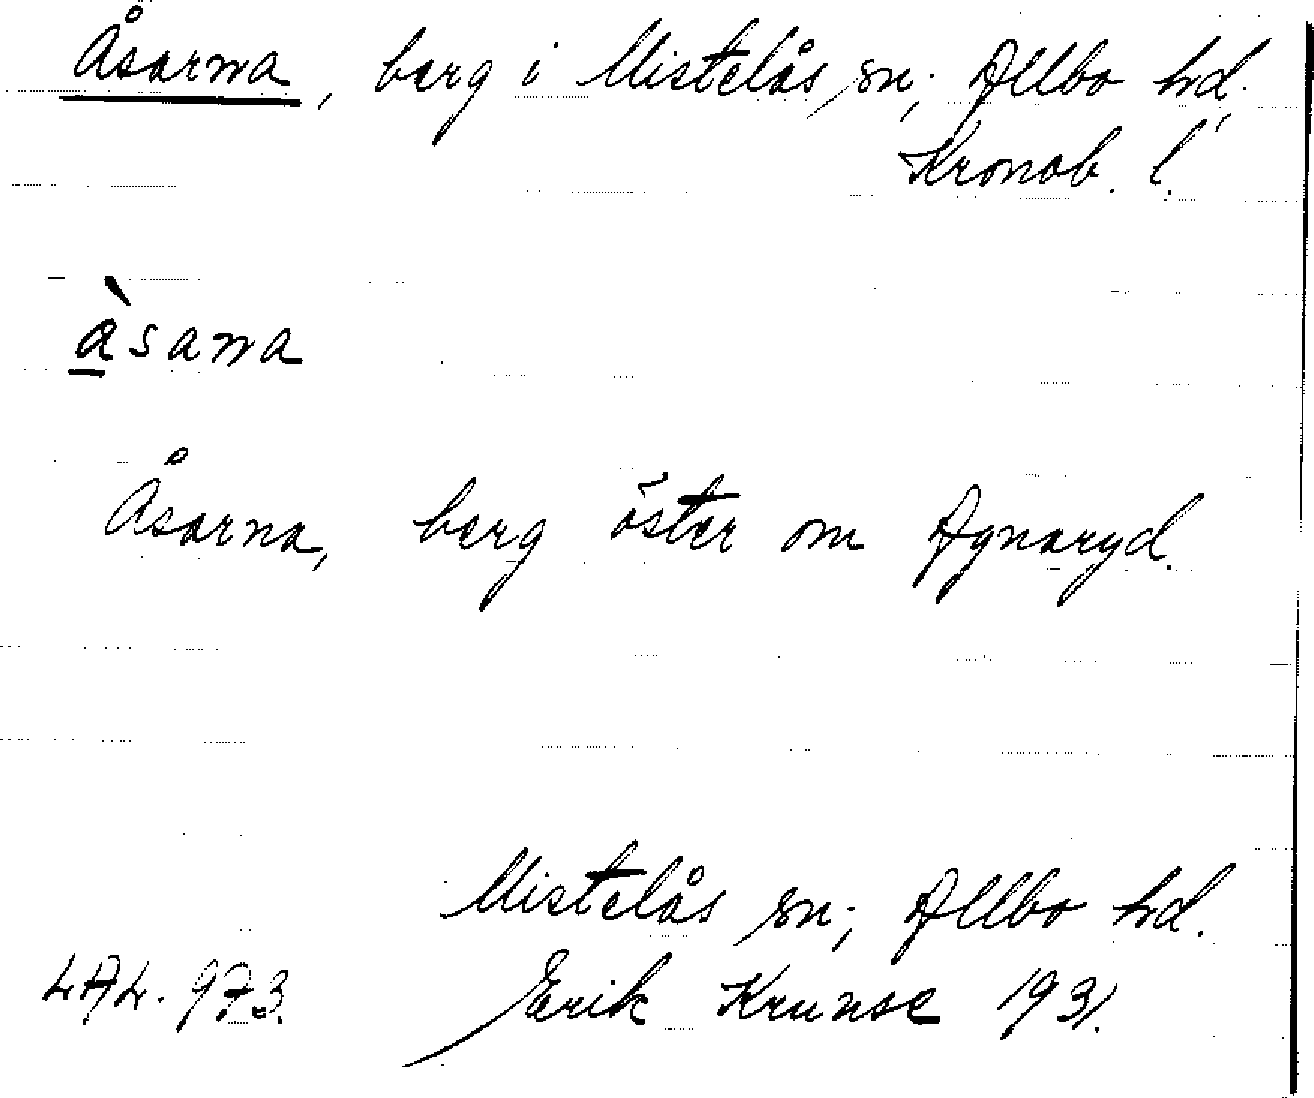 Åsarna, berg i Mistelås sn; Allbo hd.
Kronob. l.
àsana
Åsarna, berg öster om Agnaryd.
Mistelås sn; Allbo hd.
474.973. Erik Krunse 1931.